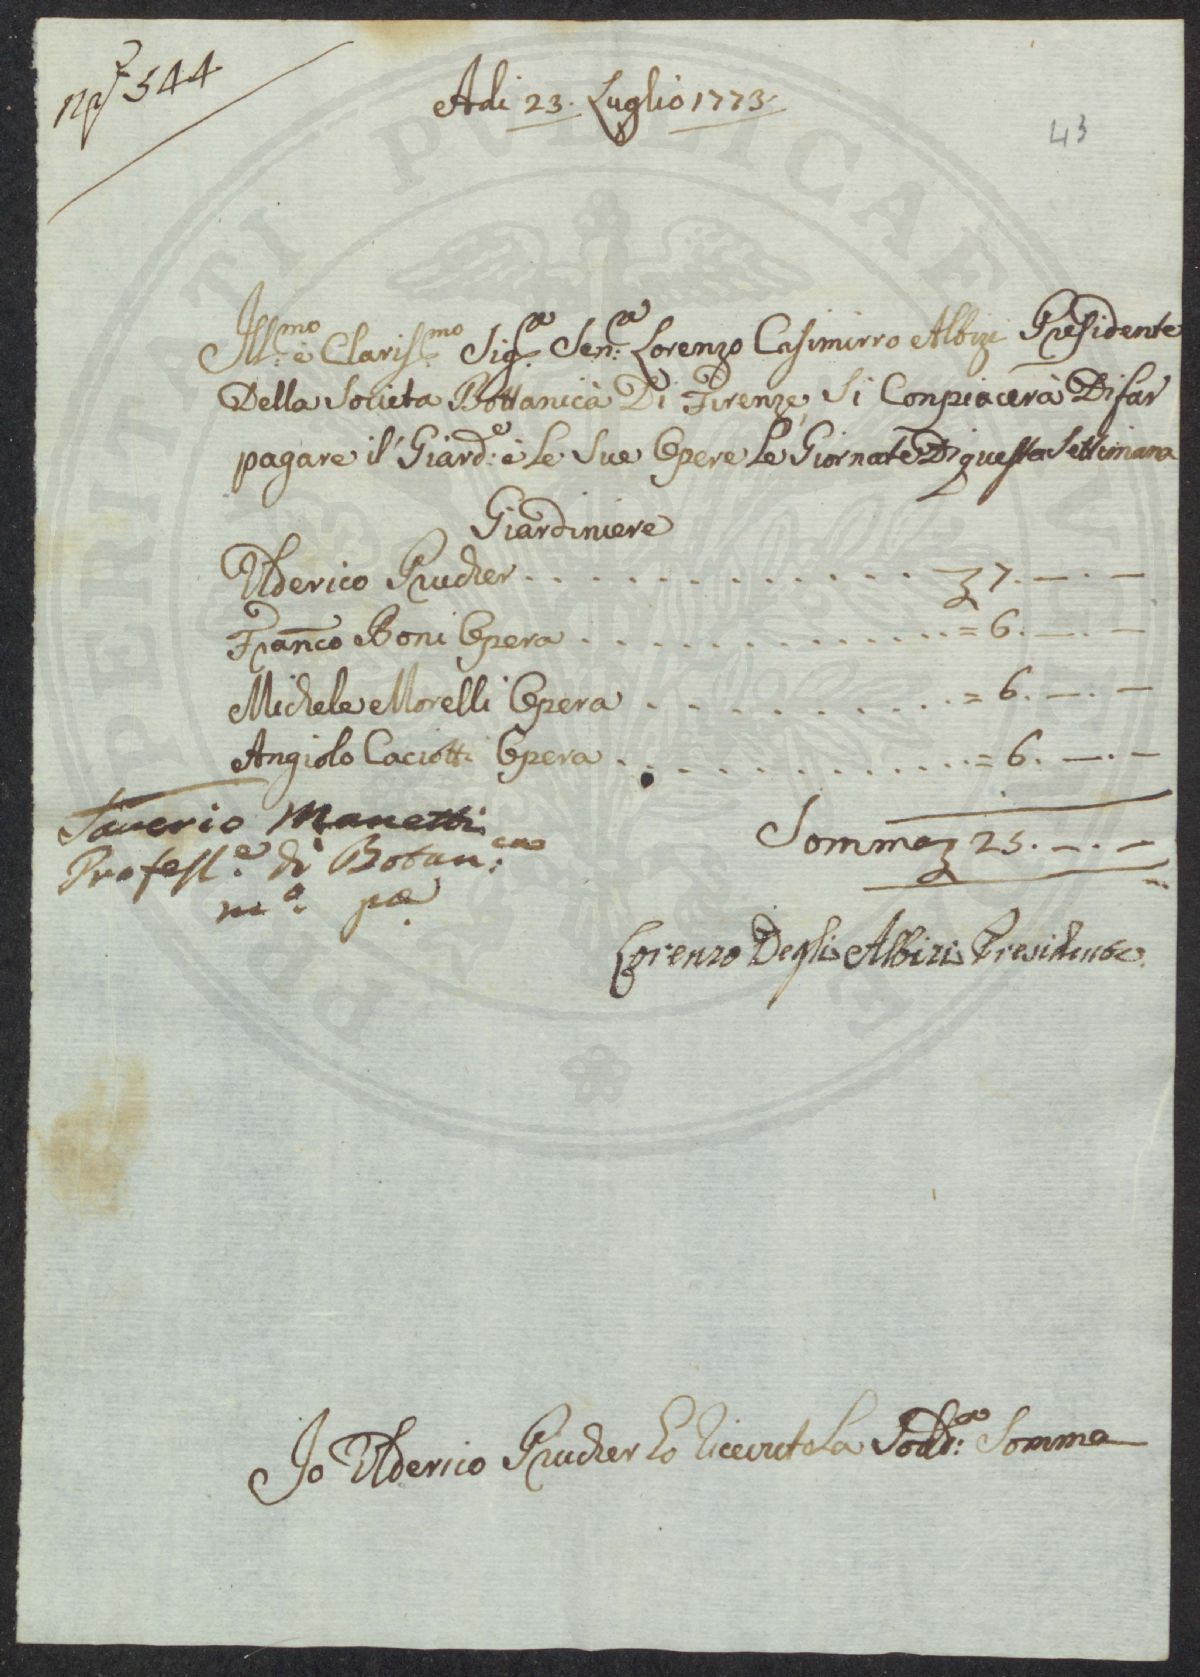 N.° 544
Adi 23. Luglio 1773.
43
Ill.mo è Claris.mo Sig.e Sen.e Lorenzo Casimirro Albizi Presidente
Della Societa Bottanicà Di Firenze, Si Conpiacerà Di far
pagare il Giard.e è Le Sue Opere Le Giornate Di questa Settimana
Giardiniere
Ulderico Prucher . . . . . . . . . . . . . £ 7. — . —
Franco Boni Opera . . . . . . . . . . . . = 6. — . —
Michele Morelli Opera . . . . . . . . . . = 6. — . —
Angiolo Caciotti Opera . . . . . . . . . . = 6. — . —
Saverio Manetti
Profess.e di Botan.ca
m.o pa.
Somma £ 25. — . —
Lorenzo Degli Albizi Presidente
Io Ulderico Prucher ho Riceuto La Sodd.a Somma
PERITATI PUBLICAE